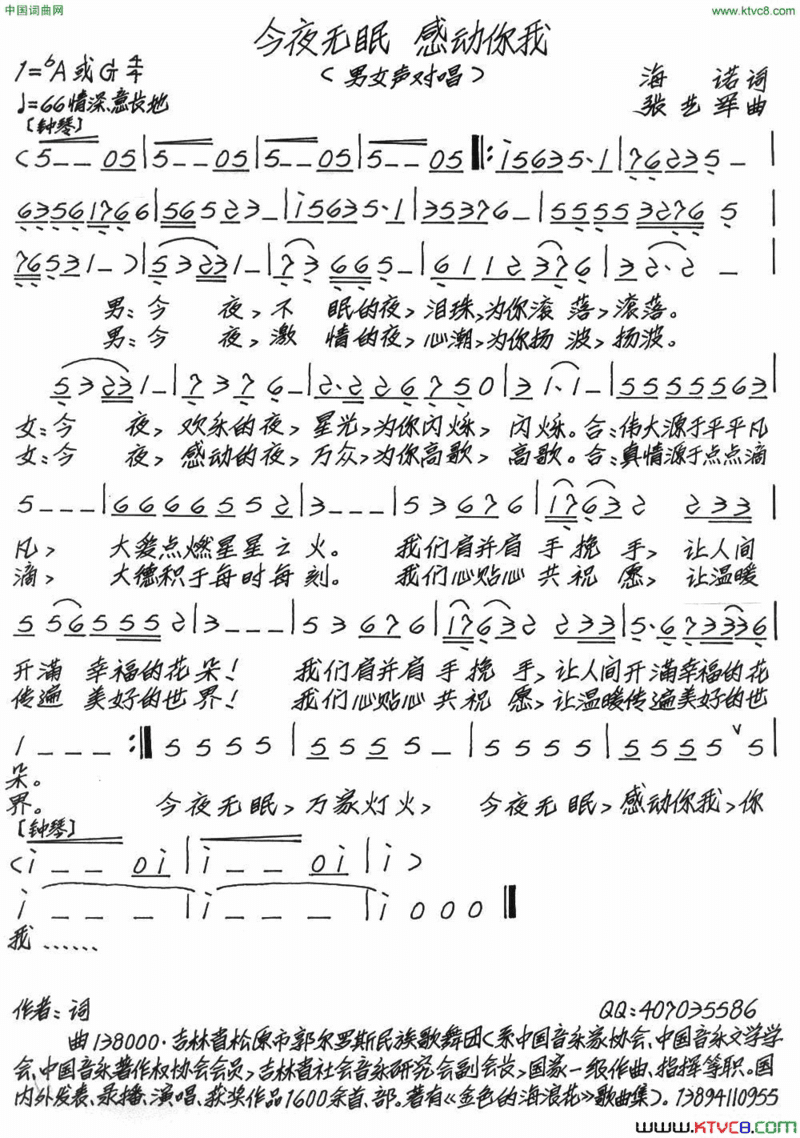 中国词曲网
www.ktvc8.com
今夜无眠 感动你我
(男女声对唱)
1=♭A或G 4/4
海诺词
♩=66 情深、意长地
张艺军曲
[钟琴]
(5 - - 05 | 5 - - 05 | 5 - - 05 | 5 - - 05 ‖: i5635·1 | 76235 - |
63561766 | 56523 - | i5635·1 | 35376 - | 55553276 5 |
76531 - ) | 53231 - | 73665 - | 6112376 | 32·2 - |
男:今 夜,不 眠的夜,泪珠,为你滚 落,滚落。
男:今 夜,激 情的夜,心潮,为你扬 波,扬波。
53231 - | 7376 - | 2·226750 | 31·1 - | 55555563 |
女:今 夜,欢乐的夜,星光,为你闪烁,闪烁。合:伟大源于平平凡
女:今 夜,感动的夜,万众,为你高歌,高歌。合:真情源于点点滴
5 - - - | 66665552 | 3 - - - | 53676 | 17632 233 |
凡, 大爱点燃星星之火。 我们肩并肩 手挽 手,让人间
滴, 大德积于每时每刻。 我们心贴心 共祝 愿,让温暖
5 565552 | 3 - - - | 53676 | 17632 233 | 5·673336 |
开满 幸福的花朵! 我们肩并肩 手挽 手,让人间开满幸福的花
传遍 美好的世界! 我们心贴心 共祝 愿,让温暖传遍美好的世
1 - - - :‖ 5555 | 5555 - | 5555 | 5555 ∨ 5 |
朵。
界。 今夜无眠,万家灯火, 今夜无眠,感动你我,你
[钟琴]
(i - - 0i | i - - 0i | i | i )
i - - - | i - - - | i 000 ‖
我……
作者:词
QQ:407035586
曲 138000·吉林省松原市郭尔罗斯民族歌舞团(系中国音乐家协会、中国音乐文学学
会、中国音乐著作权协会会员,吉林省社会音乐研究会副会长,国家一级作曲、指挥等职。国
内外发表、录播、演唱、获奖作品1600余首、部。著有《金色的海浪花》歌曲集)。13894110955
www.KTVC8.com